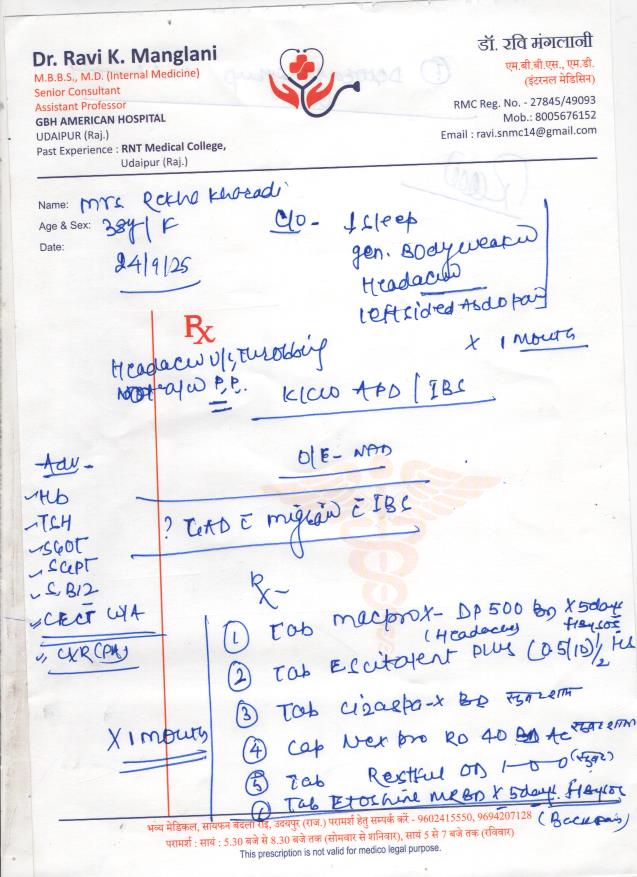 Dr. Ravi K. Manglani
M.B.B.S., M.D. (Internal Medicine)
Senior Consultant
Assistant Professor
GBH AMERICAN HOSPITAL
UDAIPUR (Raj.)
Past Experience : RNT Medical College,
Udaipur (Raj.)
डॉ. रवि मंगलानी
एम.बी.बी.एस., एम.डी.
(इंटरनल मेडिसिन)
RMC Reg. No. - 27845/49093
Mob.: 8005676152
Email : ravi.snmc14@gmail.com
Name: Mrs Rekha Kharadi
Age & Sex: 38y/F
Date:
24/9/25
C/O - ↓ Sleep
gen. Body weakn
Headache
left sided Abdo pain
X 1 month
Rx
Headache U/L, Throbbing
P.P.
K/C/O APD / IBS
O/E - NAD
? GAD c̄ migraine c̄ IBS
Adv -
Hb
TSH
SGOT
SGPT
S. B12
CECT W/A
CXR (PA)
X 1 month
Rx -
① Tab Macprox - DP 500 BD X 5 days
(Headache) सुबह शाम
② Tab Escitalent Plus (0.5/10) 1/2 HS
③ Tab Cizaspa-X BD सुबह शाम
④ Cap Nexpro RD 40 BD AC सुबह शाम
⑤ Tab Restful OD 1-0-0 (सुबह)
⑥ Tab Etoshine MR BD X 5 days
(Back pain)
भव्य मेडिकल, सायफन बेदला रोड़, उदयपुर (राज.) परामर्श हेतु सम्पर्क करें - 9602415550, 9694207128
परामर्श : सायं : 5.30 बजे से 8.30 बजे तक (सोमवार से शनिवार), सायं 5 से 7 बजे तक (रविवार)
This prescription is not valid for medico legal purpose.